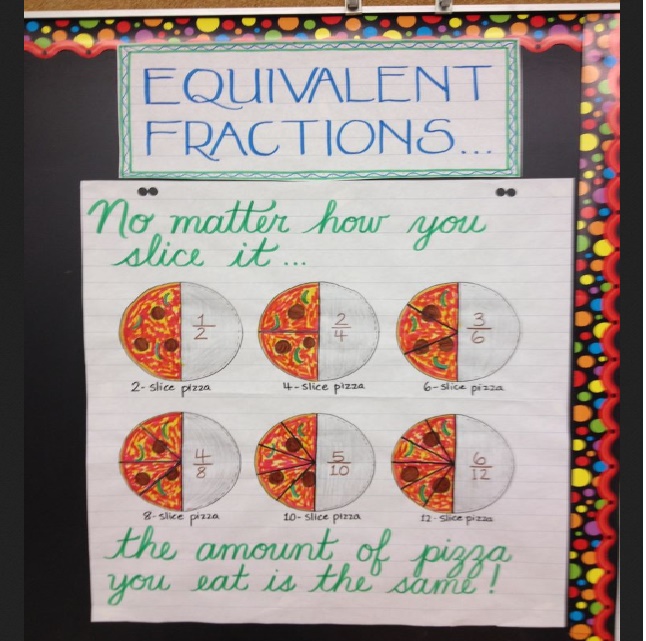 EQUIVALENT
FRACTIONS...
No matter how you
slice it...
1/2 2/4 3/6
2-slice pizza 4-slice pizza 6-slice pizza
4/8 5/10 6/12
8-slice pizza 10-slice pizza 12-slice pizza
the amount of pizza
you eat is the same!